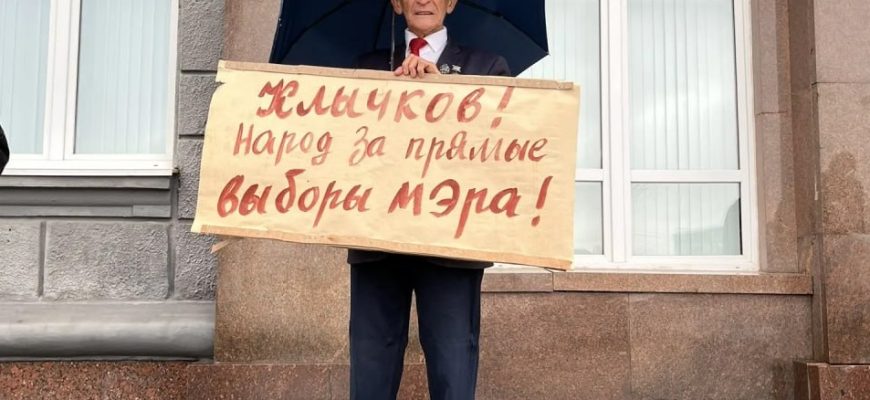 Клычков!
Народ за прямые
выборы мэра!